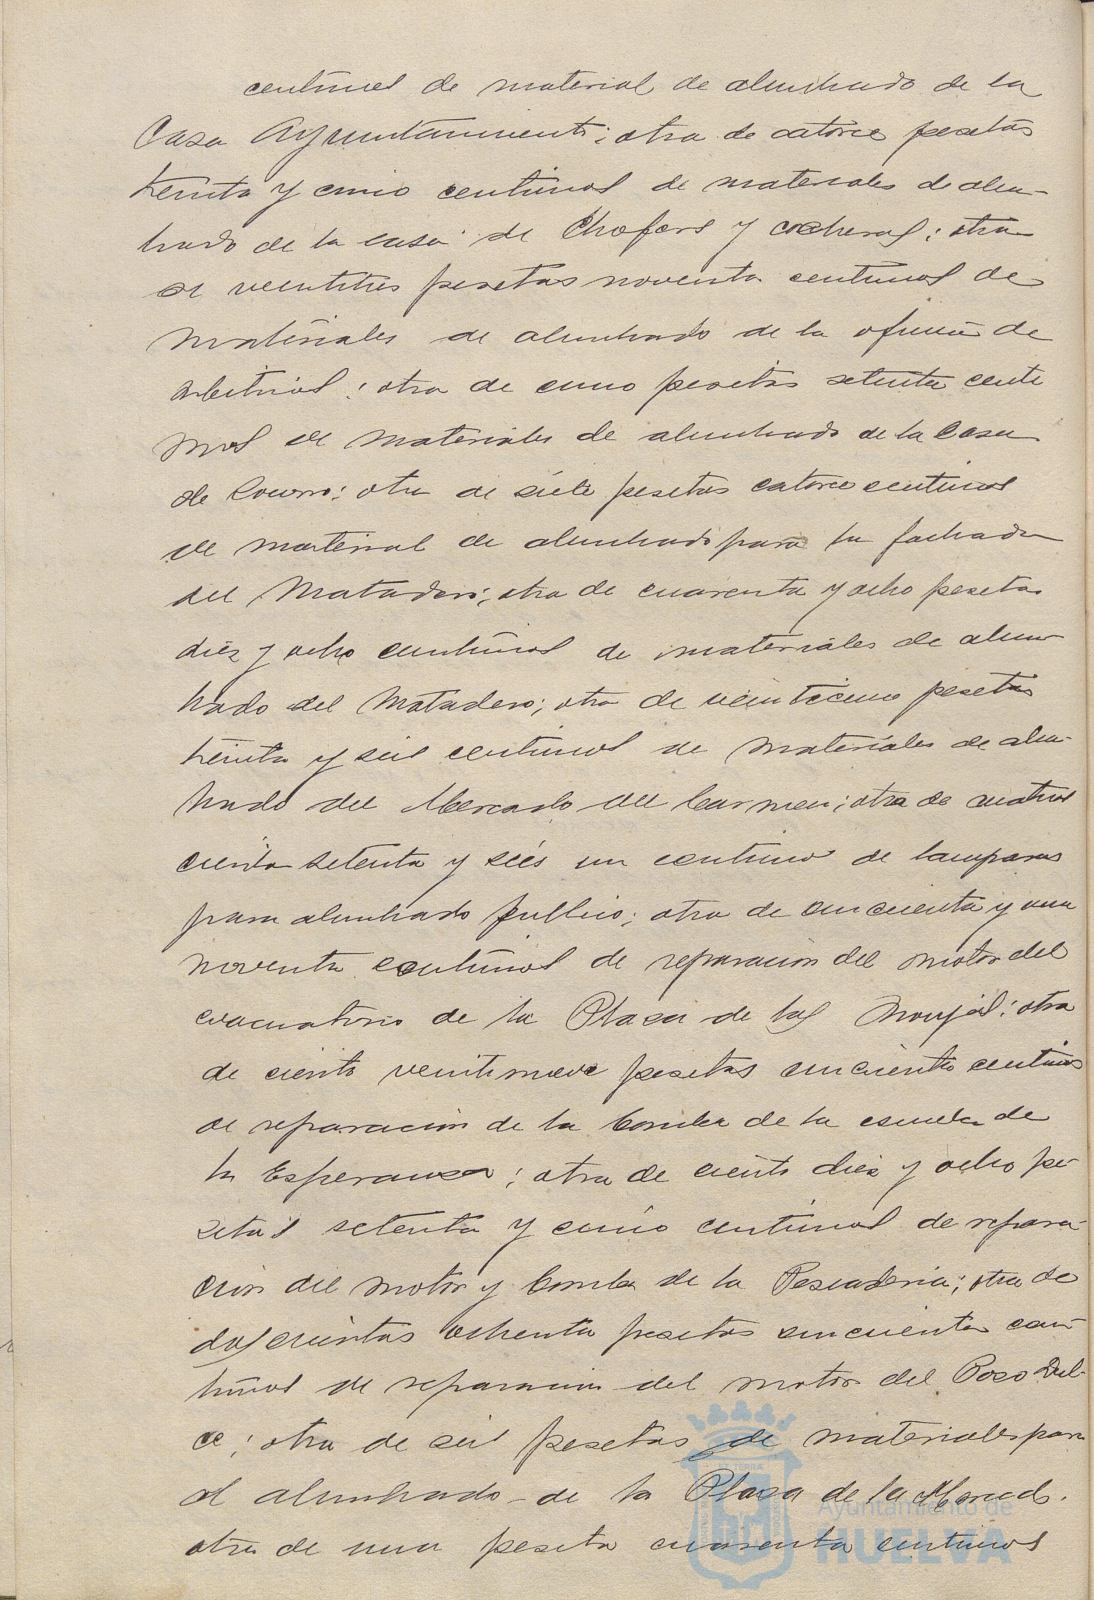 centimos de material de alumbrado de la
Casa Ayuntamiento; otra de catorce pesetas
treinta y cinco centimos de materiales de alum-
brado de la casa de Chofers y cocheras; otra
de veintitres pesetas noventa centimos de
materiales de alumbrado de la oficina de
arbitrios; otra de cinco pesetas setenta centi
mos de materiales de alumbrado de la Casa
de Socorro; otra de siete pesetas catorce centimos
de material de alumbrado para la fachada
del Matadero; otra de cuarenta y ocho pesetas
diez y ocho centimos de materiales de alum
brado del Matadero; otra de veinticinco pesetas
treinta y seis centimos de materiales de alum-
brado del Mercado del Carmen; otra de cuatro
cientas setenta y seis un centimo de lamparas
para alumbrado publico; otra de cincuenta y una
noventa centimos de reparacion del motor del
evacuatorio de la Plaza de las Monjas; otra
de ciento veintinueve pesetas cincuenta centimos
de reparacion de la bomba de la escuela de
la Esperanza; otra de ciento diez y ocho pe-
setas setenta y cinco centimos de repara-
cion del motor y bomba de la Pescaderia; otra de
doscientas ochenta pesetas cincuenta cen-
timos de reparacion del motor del Pozo Dul-
ce; otra de seis pesetas de materiales para
el alumbrado de la Plaza de la Merced.
otra de una peseta cuarenta centimos
Ayuntamiento de
HUELVA